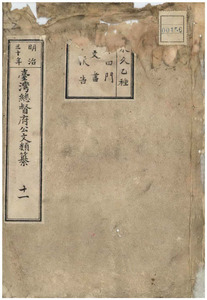 明治
三十年
臺灣總督府公文類纂
十一
永久乙種
四門
文書
報告